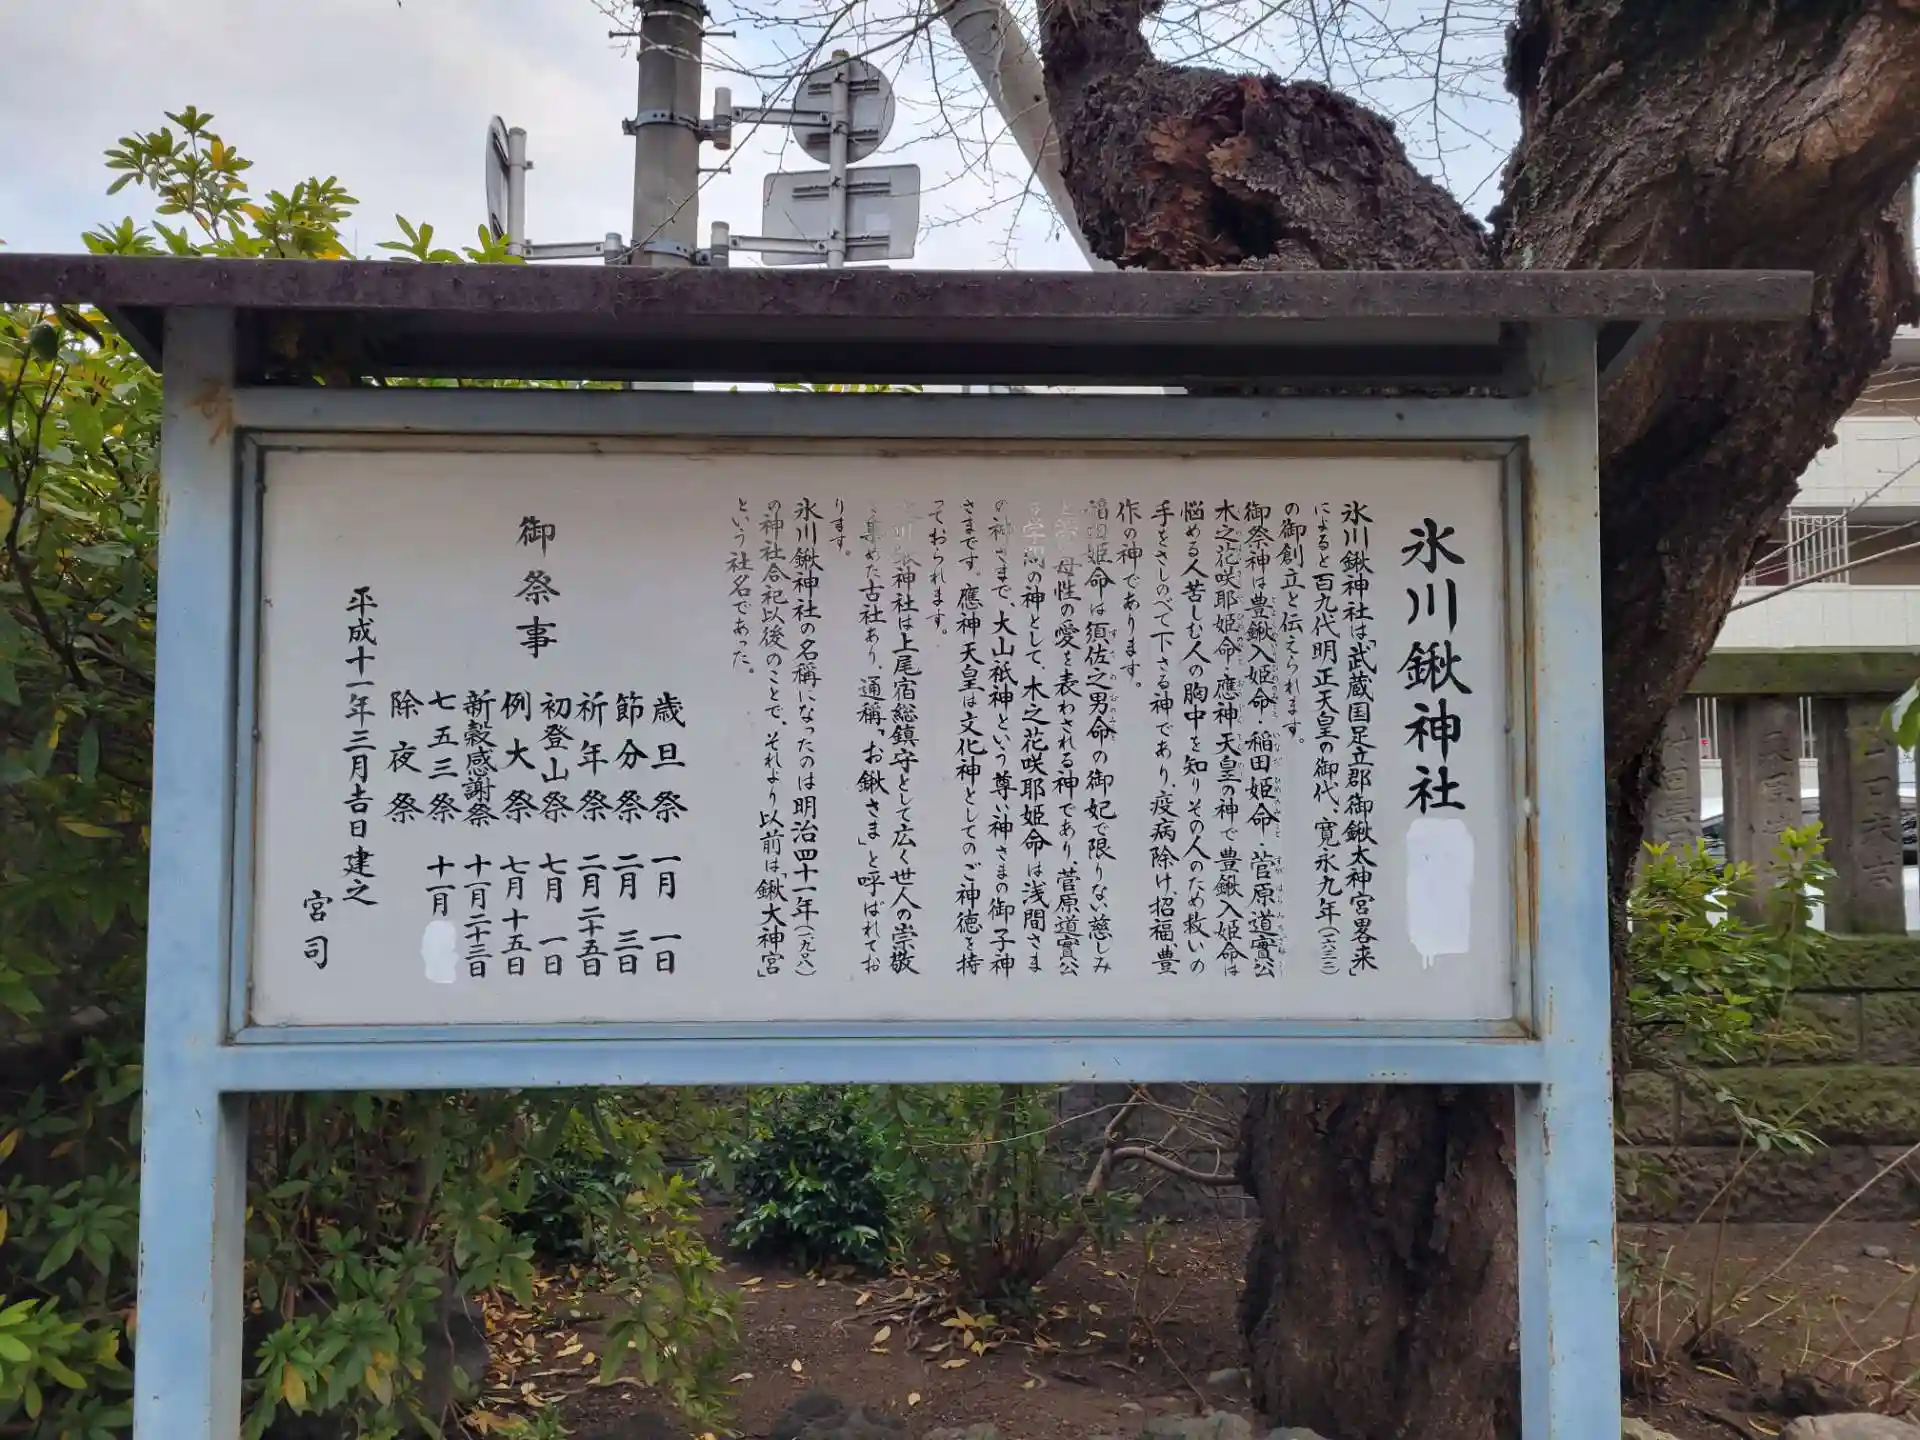 氷川鍬神社
氷川鍬神社は「武蔵国足立郡御鍬太神宮畧来」
によると百九代明正天皇の御代、寛永九年(一六三二)
の御創立と伝えられます。
御祭神は豊鍬入姫命・稲田姫命・菅原道實公
木之花咲耶姫命・應神天皇の神で豊鍬入姫命は
悩める人苦しむ人の胸中を知りその人のため救いの
手をさしのべて下さる神であり、疫病除け、招福、豊
作の神であります。
稲田姫命は須佐之男命の御妃で限りない慈しみ
と 母性の愛を表わされる神であり、菅原道實公
学問の神として、木之花咲耶姫命は浅間さま
の神さまで、大山祇神という尊い神さまの御子神
さまです。應神天皇は文化神としてのご神徳を持
っておられます。
川鍬神社は上尾宿総鎮守として広く世人の崇敬
を集めた古社あり、通稱「お鍬さま」と呼ばれてお
ります。
氷川鍬神社の名稱になったのは明治四十一年(一九〇八)
の神社合祀以後のことで、それより以前は「鍬大神宮」
という社名であった。
御祭事
歳旦祭 一月 一日
節分祭 二月 三日
祈年祭 二月二十五日
初登山祭 七月 一日
例大祭 七月十五日
新穀感謝祭 十一月二十三日
七五三祭 十一月
除夜祭
平成十一年三月吉日建之
宮司